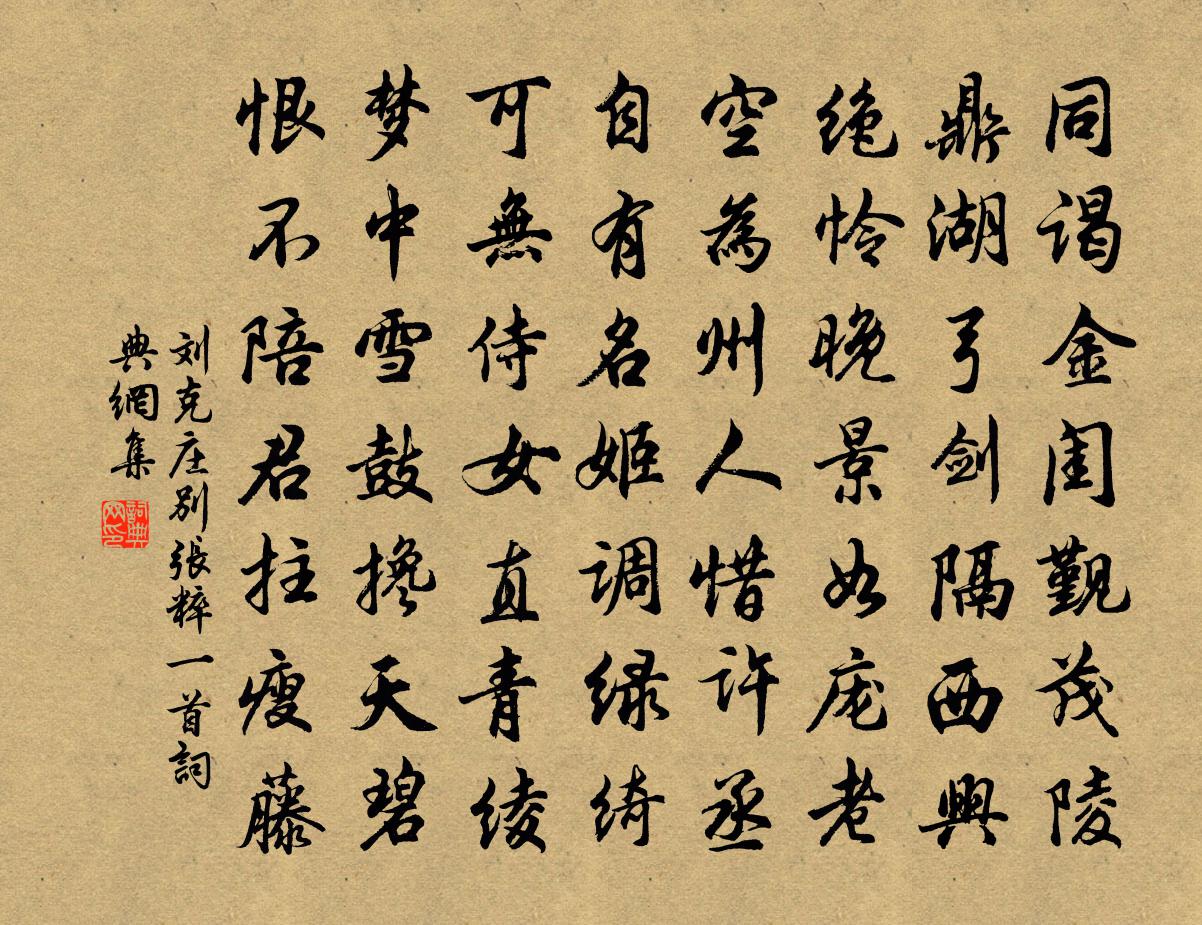 同谒金闺觐茂陵
鼎湖弓剑隔西興
绝怜晚景如庞老
空為州人惜许丞
自有名姬调绿绮
可無侍女直青绫
梦中雪鼓搀天碧
恨不陪君拄瘦藤
刘克庄别張粹一首詞
典網集
詞典
网印